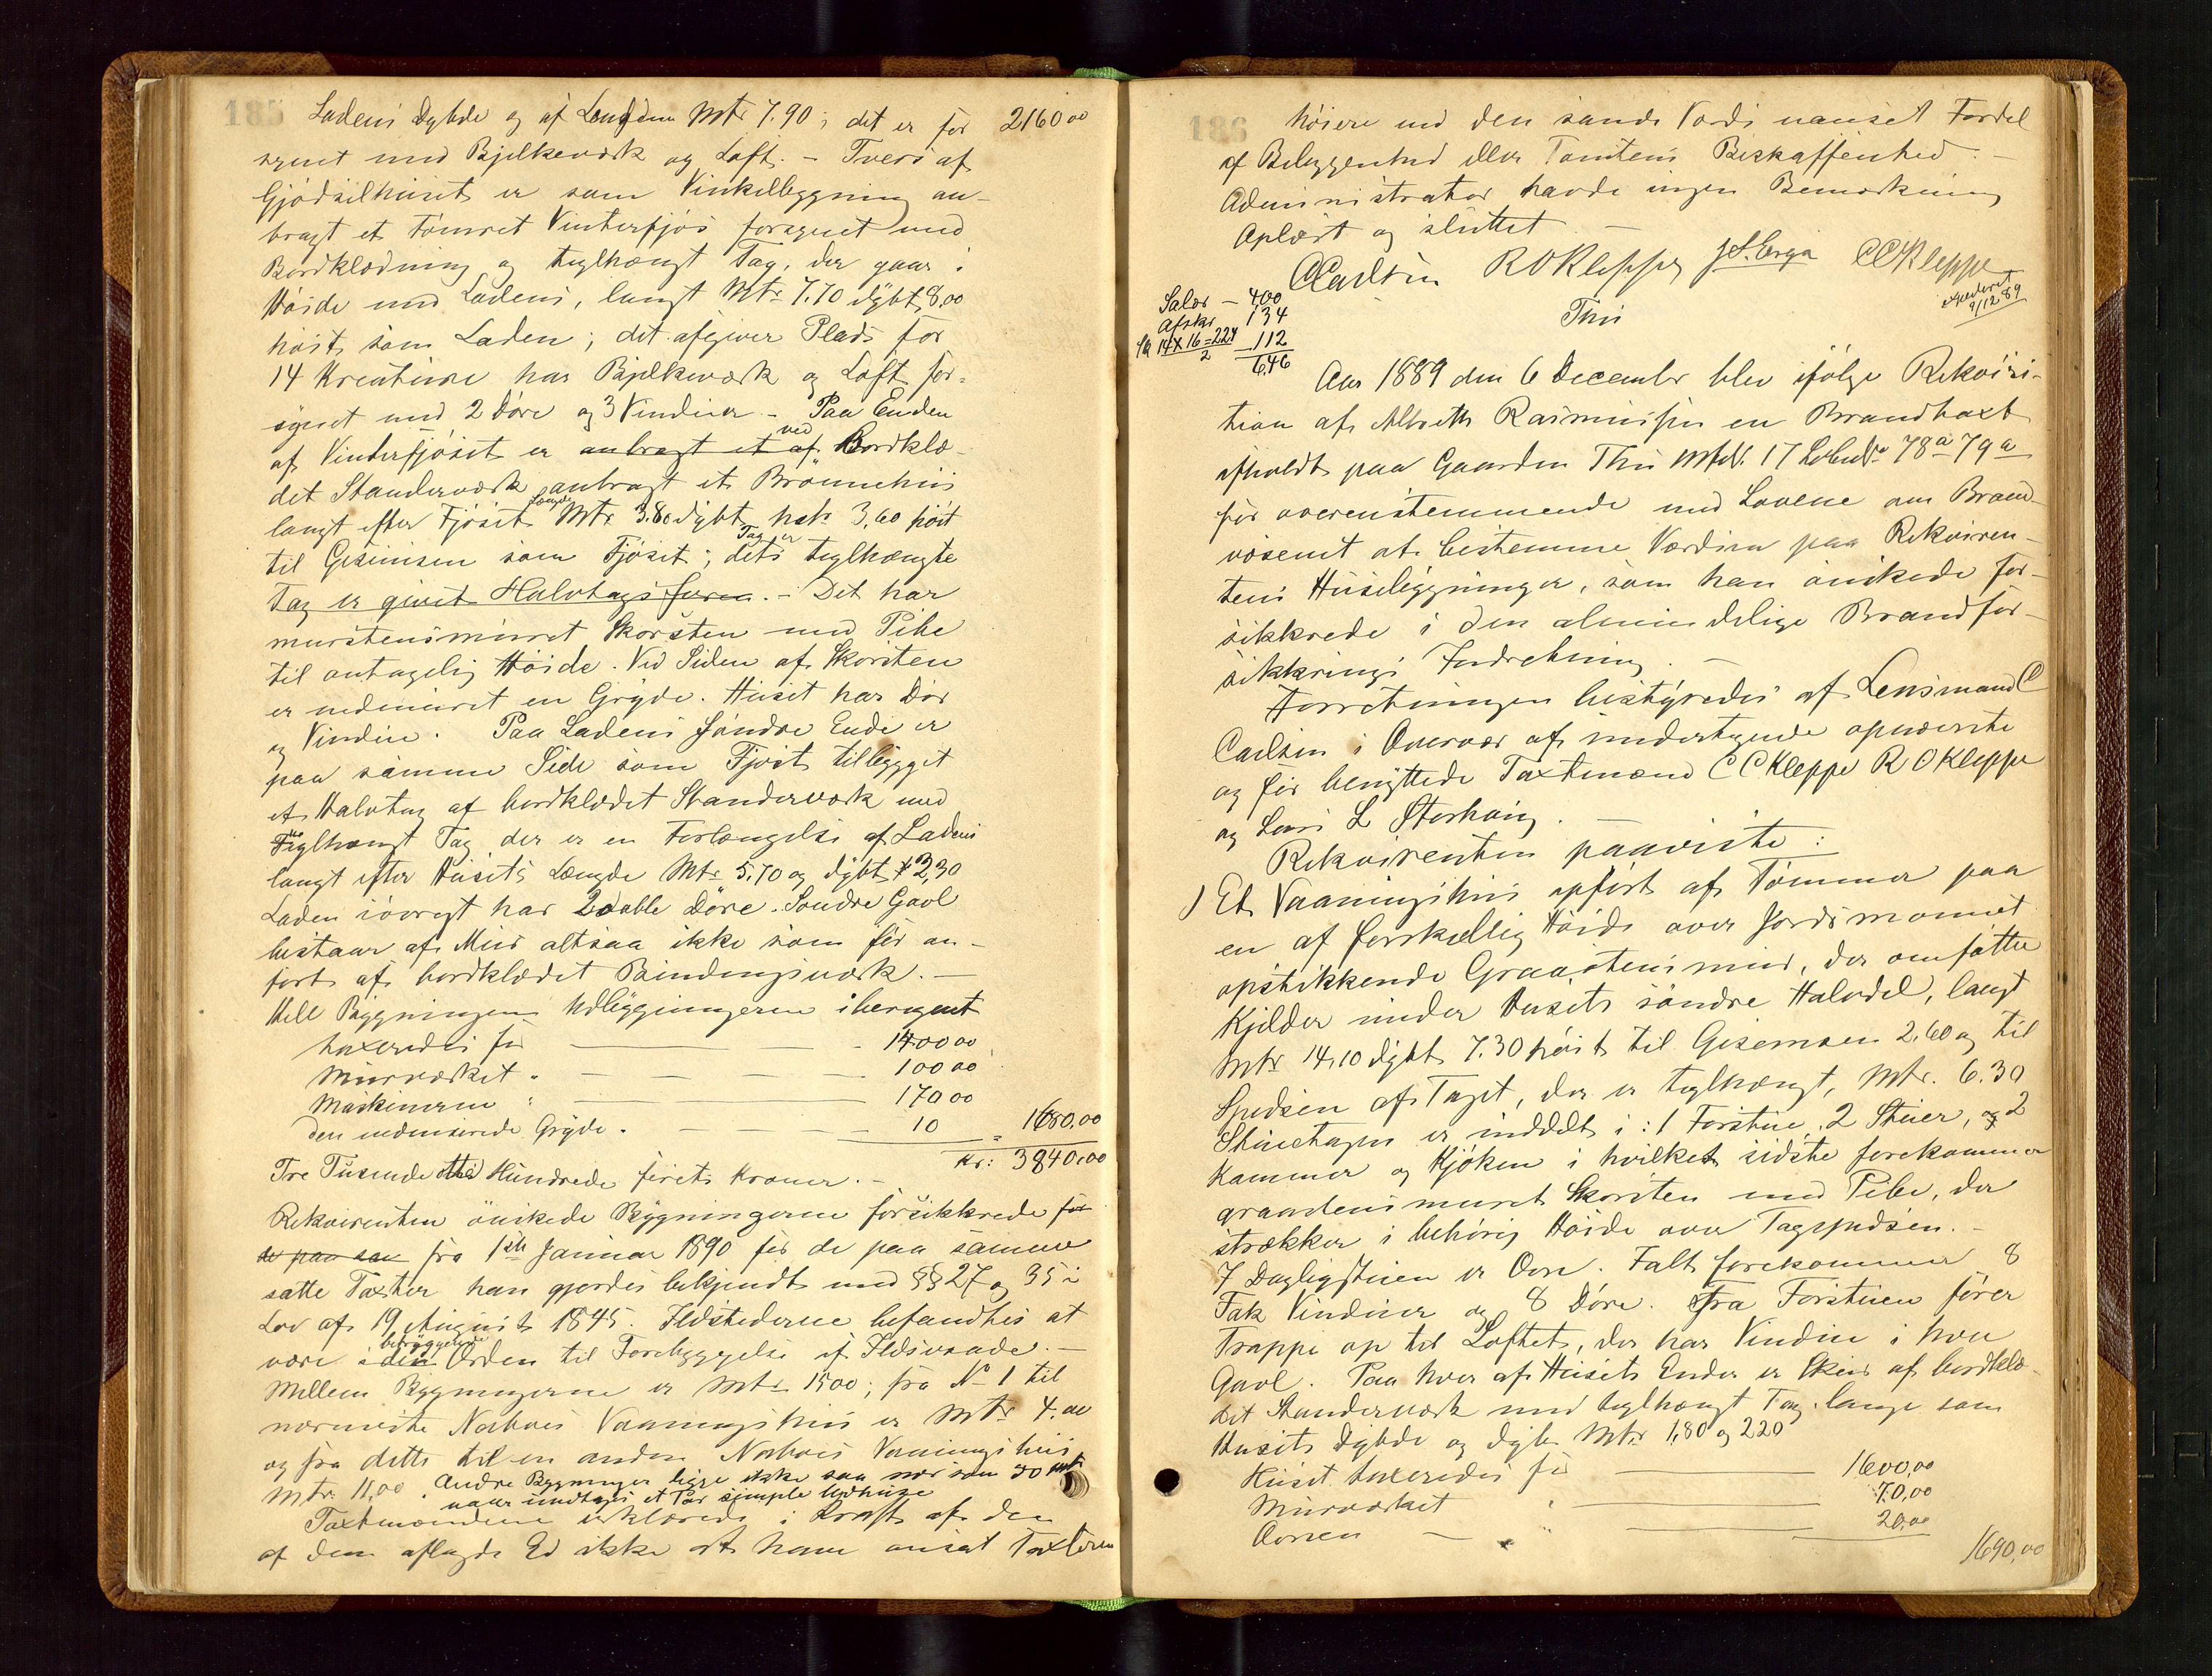 185
Ladens Dybde og af Længden Mtr 7.90; det er for 2160 00
synet med Bjelkeværk og Loft. – Tvers af
Gjødselhuset er som Vinkelbygning an-
bragt et Tømret Vinterfjøs forsynet med
Bordklædning og teglhængt Tag, der gaar i
Høide med Ladens, langt Mtr 7.70 dybt 8,00
høit som Laden; det afgiver Plads for
14 Kreaturer har Bjelkeværk og Loft for-
synet med 2 Døre og 3 Vinduer. – Paa Enden
af Vinterfjøset er anbragt et af ved Bordklæ-
det Standerværk anbragt et Brønnehus
langt efter Fjøsets Længde Mtr 3.80 dybt 3,60 høit
til Gesimsen som Fjøset; dets Tag er teglhængte
Tag er givet Halvtagsform. – Det har
murstensmuret Skorsten med Pibe
til antagelig Høide. Ved Siden af Skorsten
er nedmuret en Gryde. Huset har Dør
og Vindue. Paa Ladens søndre Ende er
paa samme Side som Fjøset tilbygget
et Halvtag af bordklædet Standerværk med
Teglhængt Tag der er en Forlængelse af Ladens
langt efter Husets Længde Mtr 5.70 og dybt 2,30
Laden iøvrigt har 2 doble Døre. Søndre Gavl
bestaar af Mur altsaa ikke som før an-
ført af bordklædet Bindingsværk. –
Hele Bygningen Udbygningerne iberegnet
taxeredes for – 1400 00
Murværket " – 100 00
Maskinerne " – 170 00
den nedmurede Gryde " – 10 = 1680,00
Kr: 3840,00
Tre Tusende otte Hundrede førti Kroner. –
Rekvirenten ønskede Bygningerne forsikkrede for
de paa sam fra 1ste Januar 1890 for de paa samme
satte Taxter han gjordes bekjendt med §§ 27 og 35 i
Lov af 19 August 1845. Ildstederne befandtes at
være i den betryggende Orden til Forebyggelse af Ildsvaade. –
Mellem Bygningerne er Mtr 15,00; fra No 1 til
nærmeste Nabos Vaaningshus er Mtr 4.00
og fra dette til en anden Nabos Vaaningshus
Mtr. 11,00. Andre Bygninger ligge ikke saa nær som 30 Mtr
naar undtages et Par simple Udhuse
Taxtmændene erklærede i Kraft af den
af dem aflagde Ed ikke at have ansat Taxterne
186
høiere end den sande Værdi uanset Fordel
af Beliggenhed eller Tomtens Beskaffenhed. –
Administrator havde ingen Bemærkning
Oplæst og sluttet –
CCarlsen ROKleppe J S. Erga CCKleppe
expederet
9/12 89
Salær – 4,00
Afskr 1 34
Sk 14 x 16 = 224
2
1 12
6,46
Thu
Aar 1889 den 6 December blev ifølge Rekvisi-
tion af Albreth Rasmussen en Brandtaxt
afholdt paa Gaarden Thu Mtrl. 17 Løbenr 78a 79a
for overenstemmende med Lovene om Brand-
væsenet at bestemme Værdien paa Rekviren-
tens Husebygninger, som han ønskede for-
sikkrede i den almindelige Brandfor-
sikkrings Indretning. –
Forretningen bestyredes af Lensmand C
Carlsen i Overvær af undertegnede opnævnte
og før benyttede Taxtmænd C C Kleppe R O Kleppe
og Lars L Storhaug. –
Rekvirenten paaviste:
1 Et Vaaningshus opført af Tømmer paa
en af forskjellig Høide over Jordsmonnet
opstikkende Graastensmur, der omfatter
Kjelder under Husets søndre Halvdel, langt
Mtr 14,10 dybt 7.30 høit til Gesimsen 2.60 og til
Spidsen af Taget, der er teglhængt, Mtr. 6.30
Stueetagen er inddelt i: 1 Forstue, 2 Stuer, og 2
Kammer og Kjøken i hvilket sidste forekommer
graastensmuret Skorsten med Pibe, der
strækker i behørig Høide over Tagspidsen. –
I Dagligstuen er Ovn. Ialt forekommer 8
Fak Vinduer og 8 Døre. Fra Forstuen fører
Trappe op til Loftet, der har Vindue i hver
Gavl. Paa hver af Husets Ender er Skur af bordklæ-
det Standerværk med teglhængt Tag lange som
Husets Dybde og dybe Mtr 1,80 og 2 20
Huset taxeredes for – 1600,00
Murværket " – 70,00
Ovnen – " – 20,00
1690,00